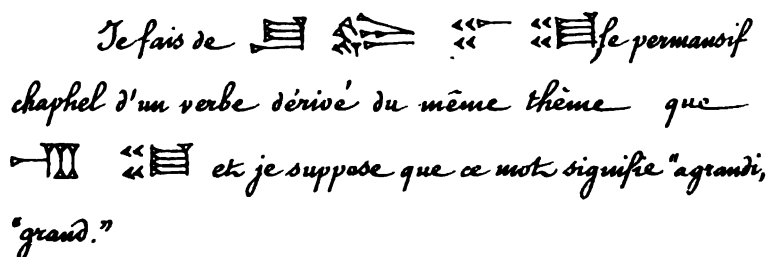 Je fais de le permansif
chaphel d'un verbe dérivé du même thème que
et je suppose que ce mot signifie "agrandi,
"grand."